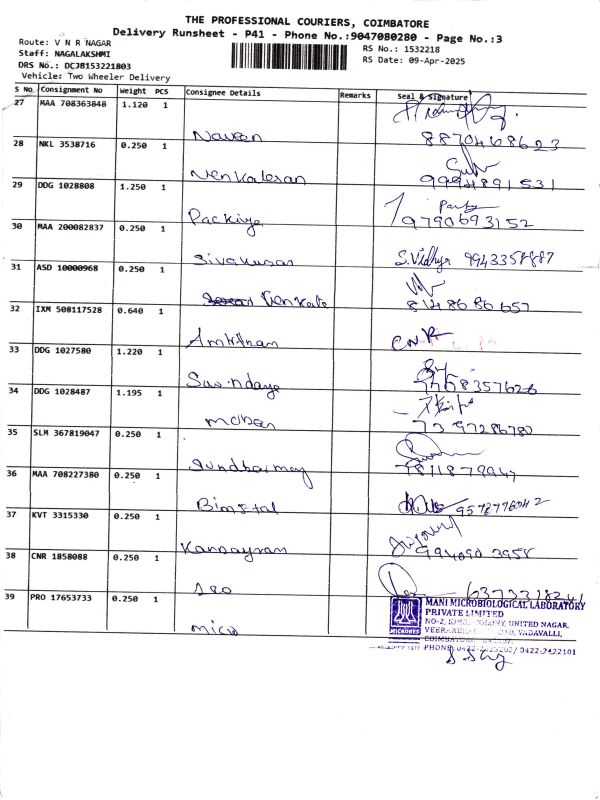 THE PROFESSIONAL COURIERS, COIMBATORE
Delivery Runsheet - P41 - Phone No.:9047080280 - Page No.:3
Route: V N R NAGAR
RS No.: 1532218
Staff: NAGALAKSHMI
RS Date: 09-Apr-2025
DRS No.: DCJB153221803
Vehicle: Two Wheeler Delivery
S No Consignment No Weight PCS Consignee Details Remarks Seal & Signature
27 MAA 708363848 1.120 1
Naveen 8870468623
28 NKL 3538716 0.250 1
Venkatesan 9994891531
29 DDG 1028808 1.250 1
Packiya 9790693152
30 MAA 200082837 0.250 1
Sivakumar S.Vidhya 9943358887
31 ASD 10000968 0.250 1
Venkate 8148686657
32 IXM 508117528 0.640 1
Amirtham
33 DDG 1027580 1.220 1
358357626
34 DDG 1028487 1.195 1
mohan 7397286780
35 SLM 367819047 0.250 1
7811879947
36 MAA 708227380 0.250 1
37 KVT 3315330 0.250 1
38 CNR 1858088 0.250 1
Leo 6373318241
39 PRO 17653733 0.250 1
micro
MANI MICROBIOLOGICAL LABORATORY
PRIVATE LIMITED
NO-2, KING COLONY, UNITED NAGAR,
VADAVALLI,
COIMBATORE
0422-2422101